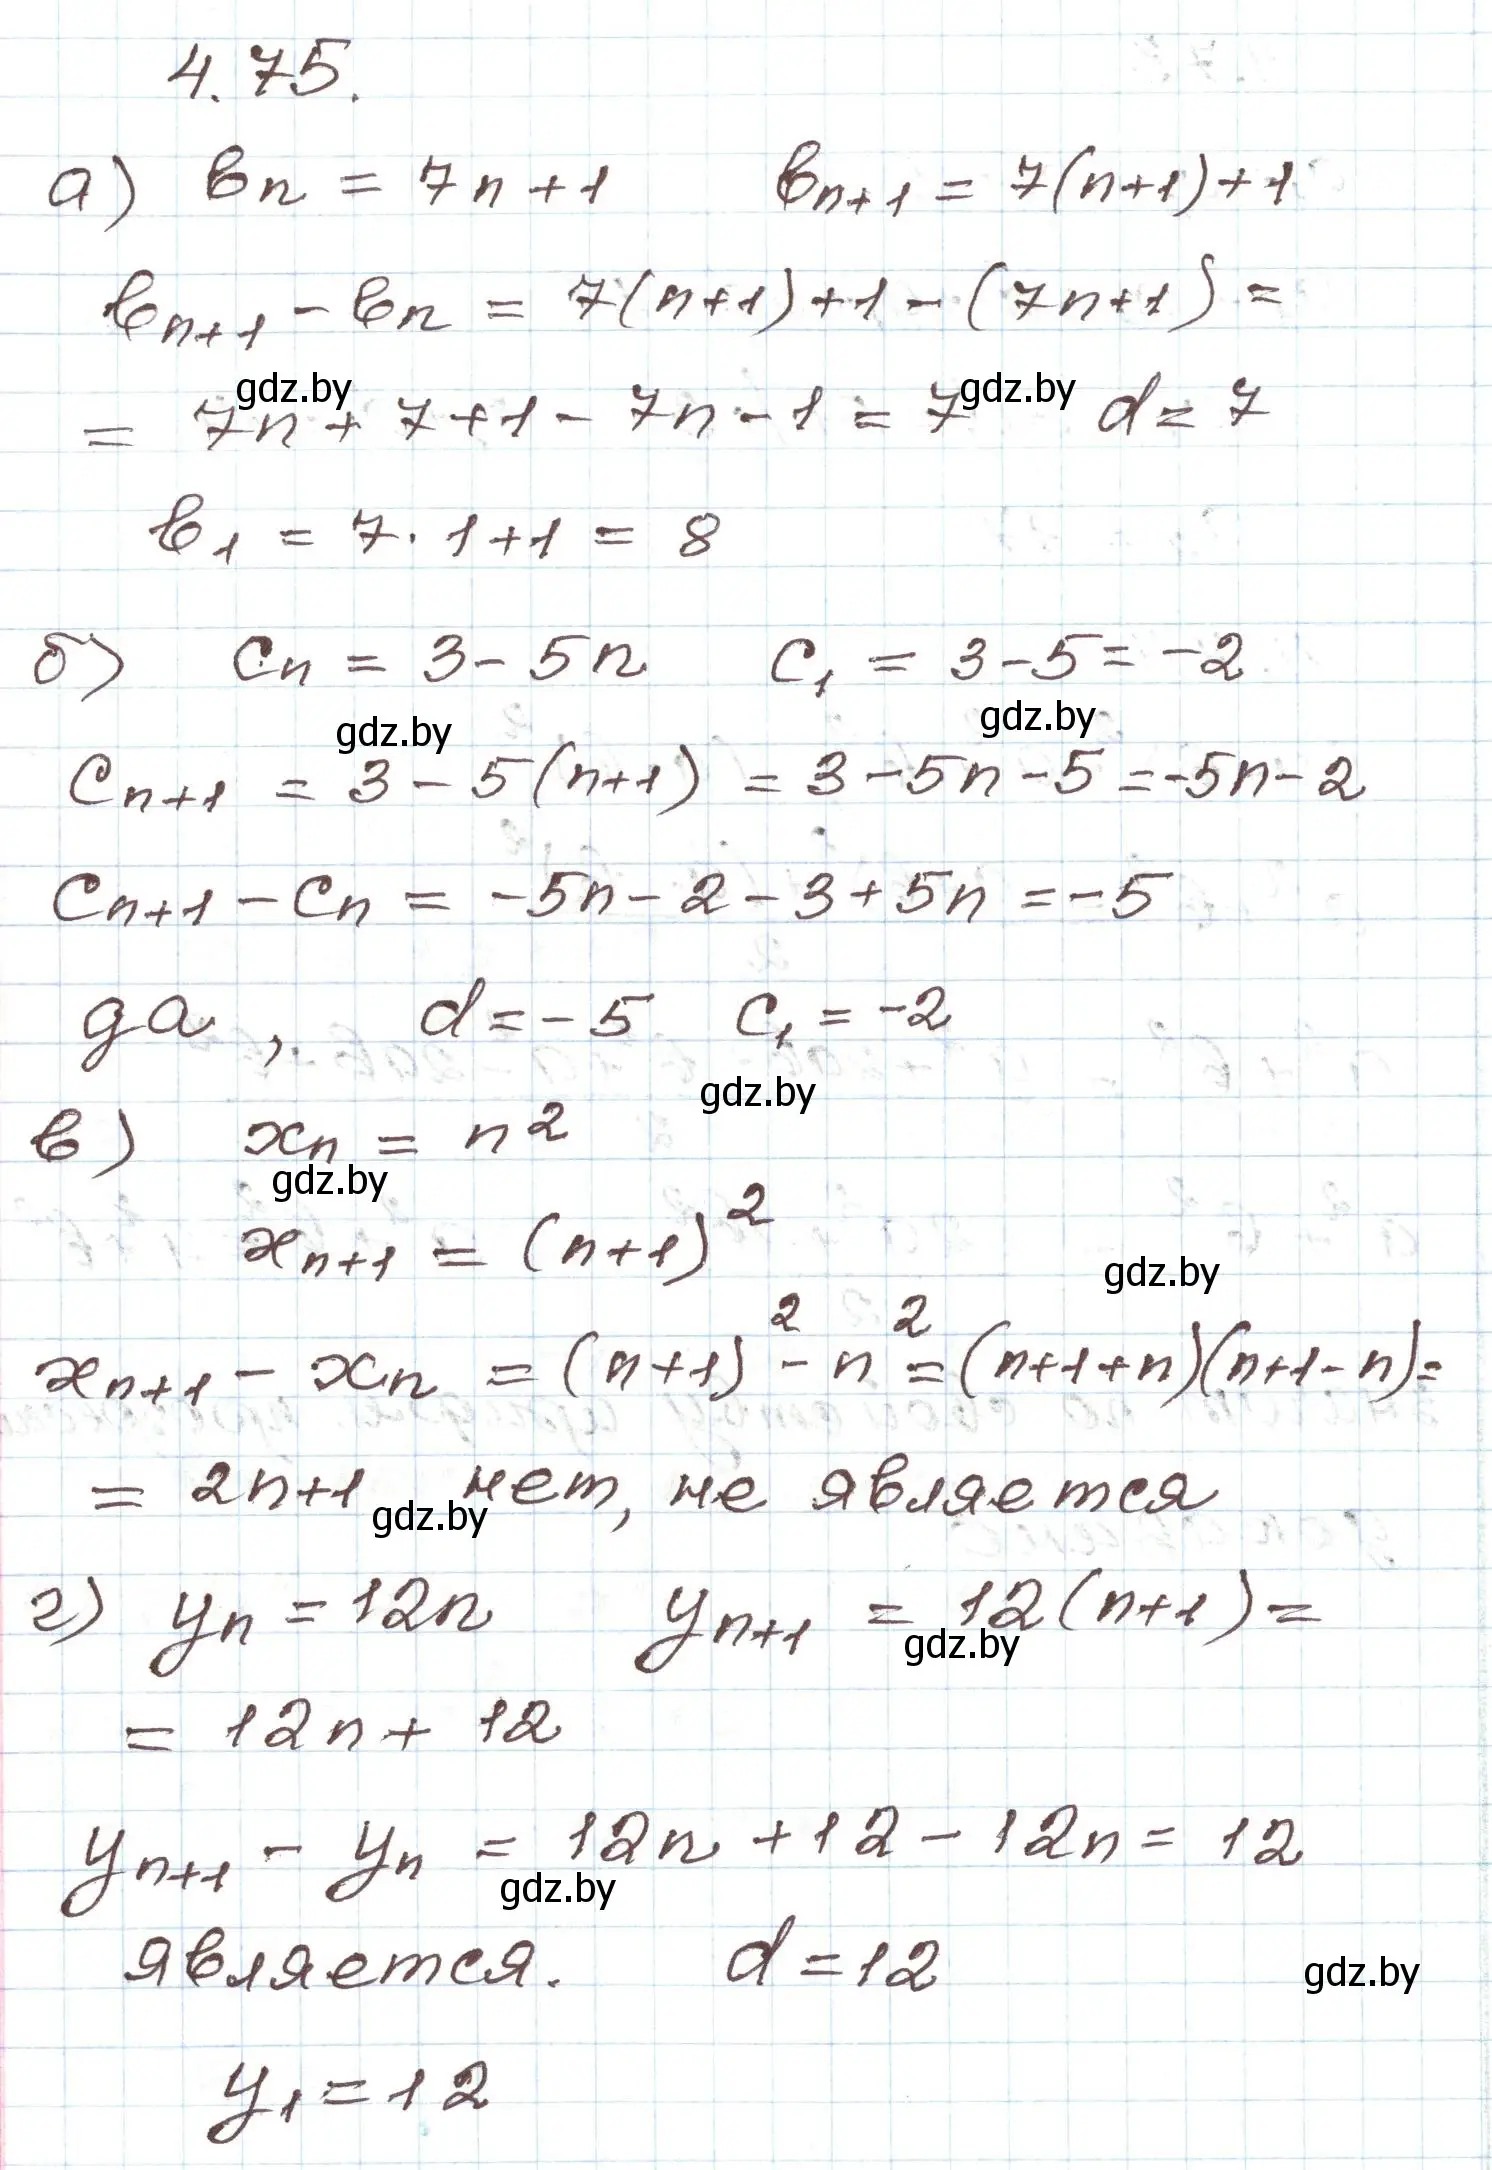 4.75.
а) вn = 7n+1 вn+1 = 7(n+1)+1
вn+1 - вn = 7(n+1)+1-(7n+1) =
gdz.by gdz.by
= 7n+7+1-7n-1=7 d=7
в1 = 7·1+1 = 8
б) cn = 3-5n c1 = 3-5=-2
gdz.by gdz.by
cn+1 = 3-5(n+1) = 3-5n-5=-5n-2
cn+1 - cn = -5n-2-3+5n=-5
да, d=-5 c1=-2
gdz.by
в) xn = n²
gdz.by
xn+1 = (n+1)²
gdz.by
xn+1 - xn = (n+1)²-n²=(n+1+n)(n+1-n)=
= 2n+1 нет, не является
gdz.by
г) yn=12n yn+1 = 12(n+1)=
gdz.by
= 12n+12
yn+1 - yn = 12n+12-12n=12
gdz.by
является. d=12
gdz.by
y1=12